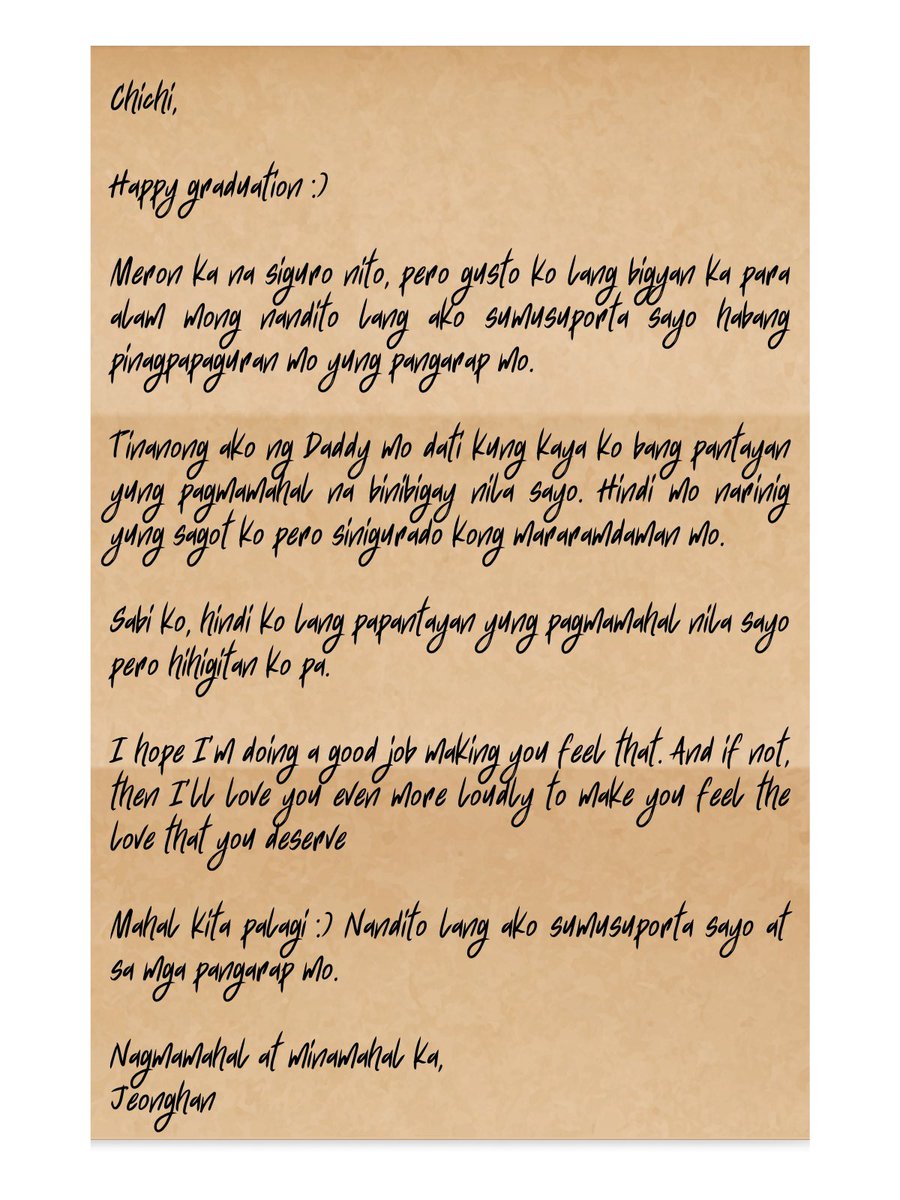 Chichi,
Happy graduation :)
Meron ka na siguro nito, pero gusto ko lang bigyan ka para
alam mong nandito lang ako sumusuporta sayo habang
pinagpapaguran mo yung pangarap mo.
Tinanong ako ng Daddy mo dati kung kaya ko bang pantayan
yung pagmamahal na binibigay nila sayo. Hindi mo narinig
yung sagot ko pero sinigurado kong mararamdaman mo.
Sabi ko, hindi ko lang papantayan yung pagmamahal nila sayo
pero hihigitan ko pa.
I hope I'm doing a good job making you feel that. And if not,
then I'll love you even more loudly to make you feel the
love that you deserve
Mahal kita palagi :) Nandito lang ako sumusuporta sayo at
sa mga pangarap mo.
Nagmamahal at minamahal ka,
Jeonghan